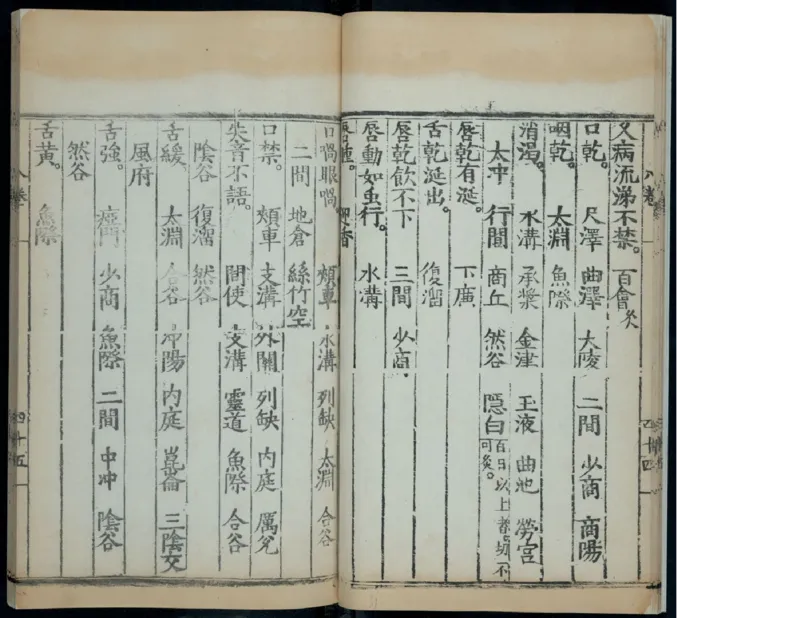 久病流涕不禁。 百會灸
口乾。 尺澤 曲澤 大陵 二間 少商 商陽
咽乾。 太淵 魚際
消渴。 水溝 承漿 金津 玉液 曲池 勞宮
太冲 行間 商丘 然谷 隠白百日以上者切不可灸。
唇乾有涎。 下廣
舌乾涎出。 復溜
唇乾飲不下 三間 少商
唇動如虫行。 水溝
唇腫。 迎香
八卷
四十四
口喎眼喎 頰車 水溝 列缺 太淵 合谷
二間 地倉 絲竹空
口禁。 頰車 支溝 外關 列缺 內庭 厲兌
失音不語。 間使 支溝 靈道 魚際 合谷
陰谷 復溜 然谷
舌緩。 太淵 合谷 冲陽 內庭 崑崙 三陰交
風府
舌強。 瘂門 少商 魚際 二間 中冲 陰谷
然谷
舌黃。 魚際
八卷
四十五